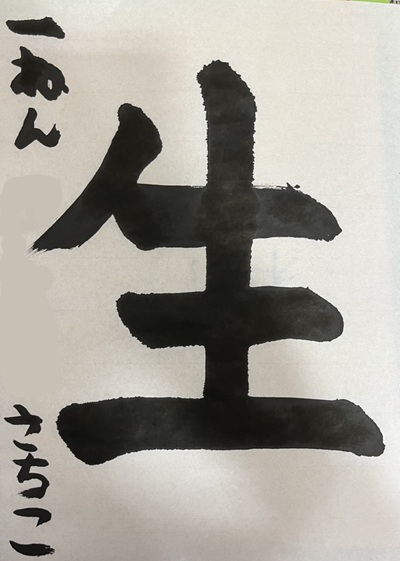 生
一ねん
さちこ